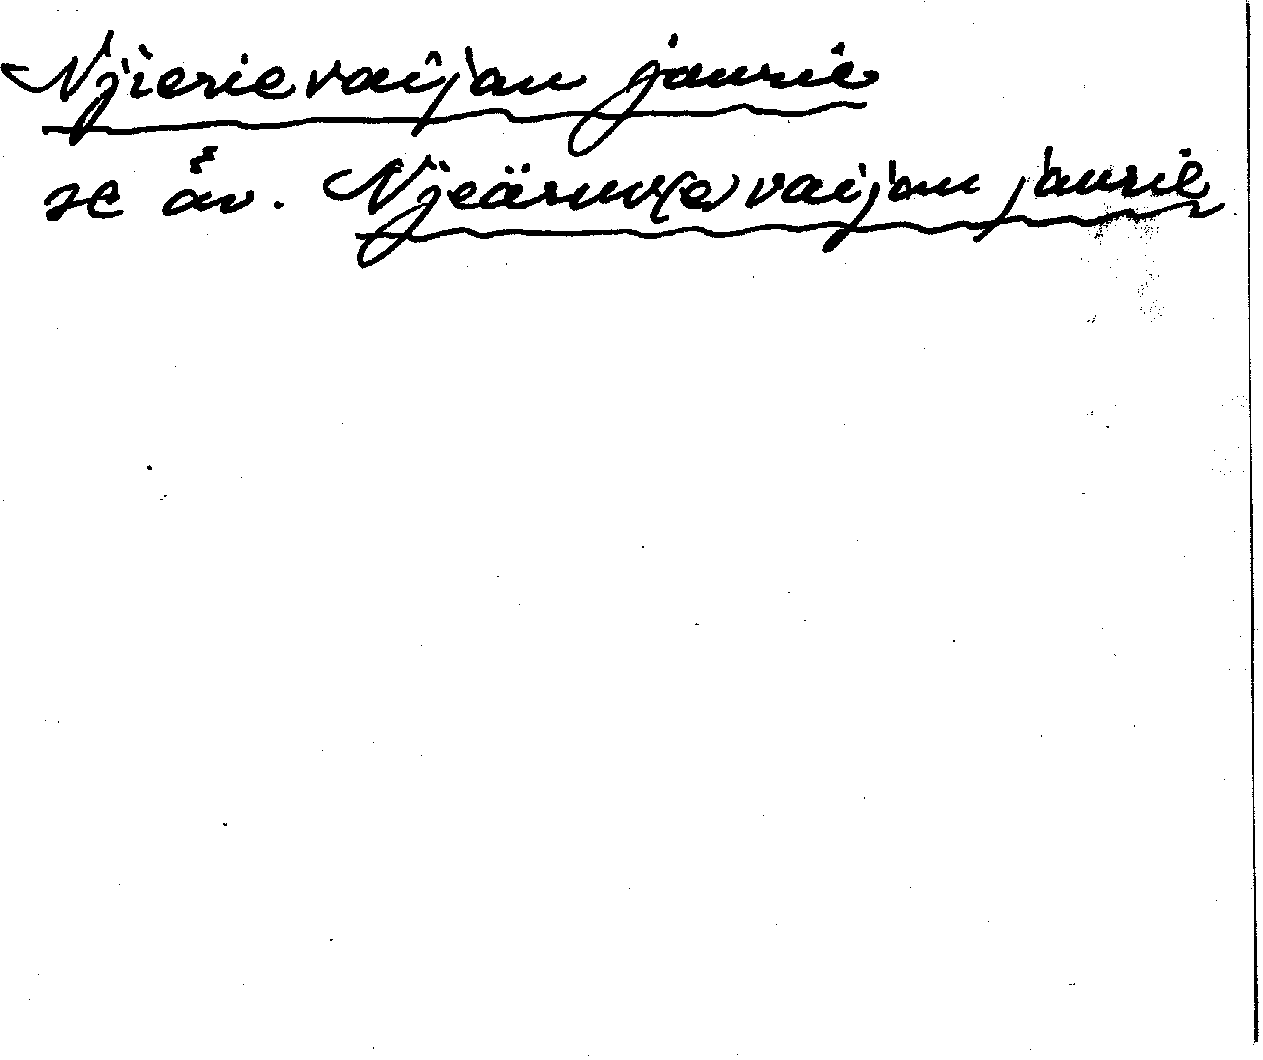 Njierievaijan jaurie
se äv. Njeäruv(e)vaijan jaurie